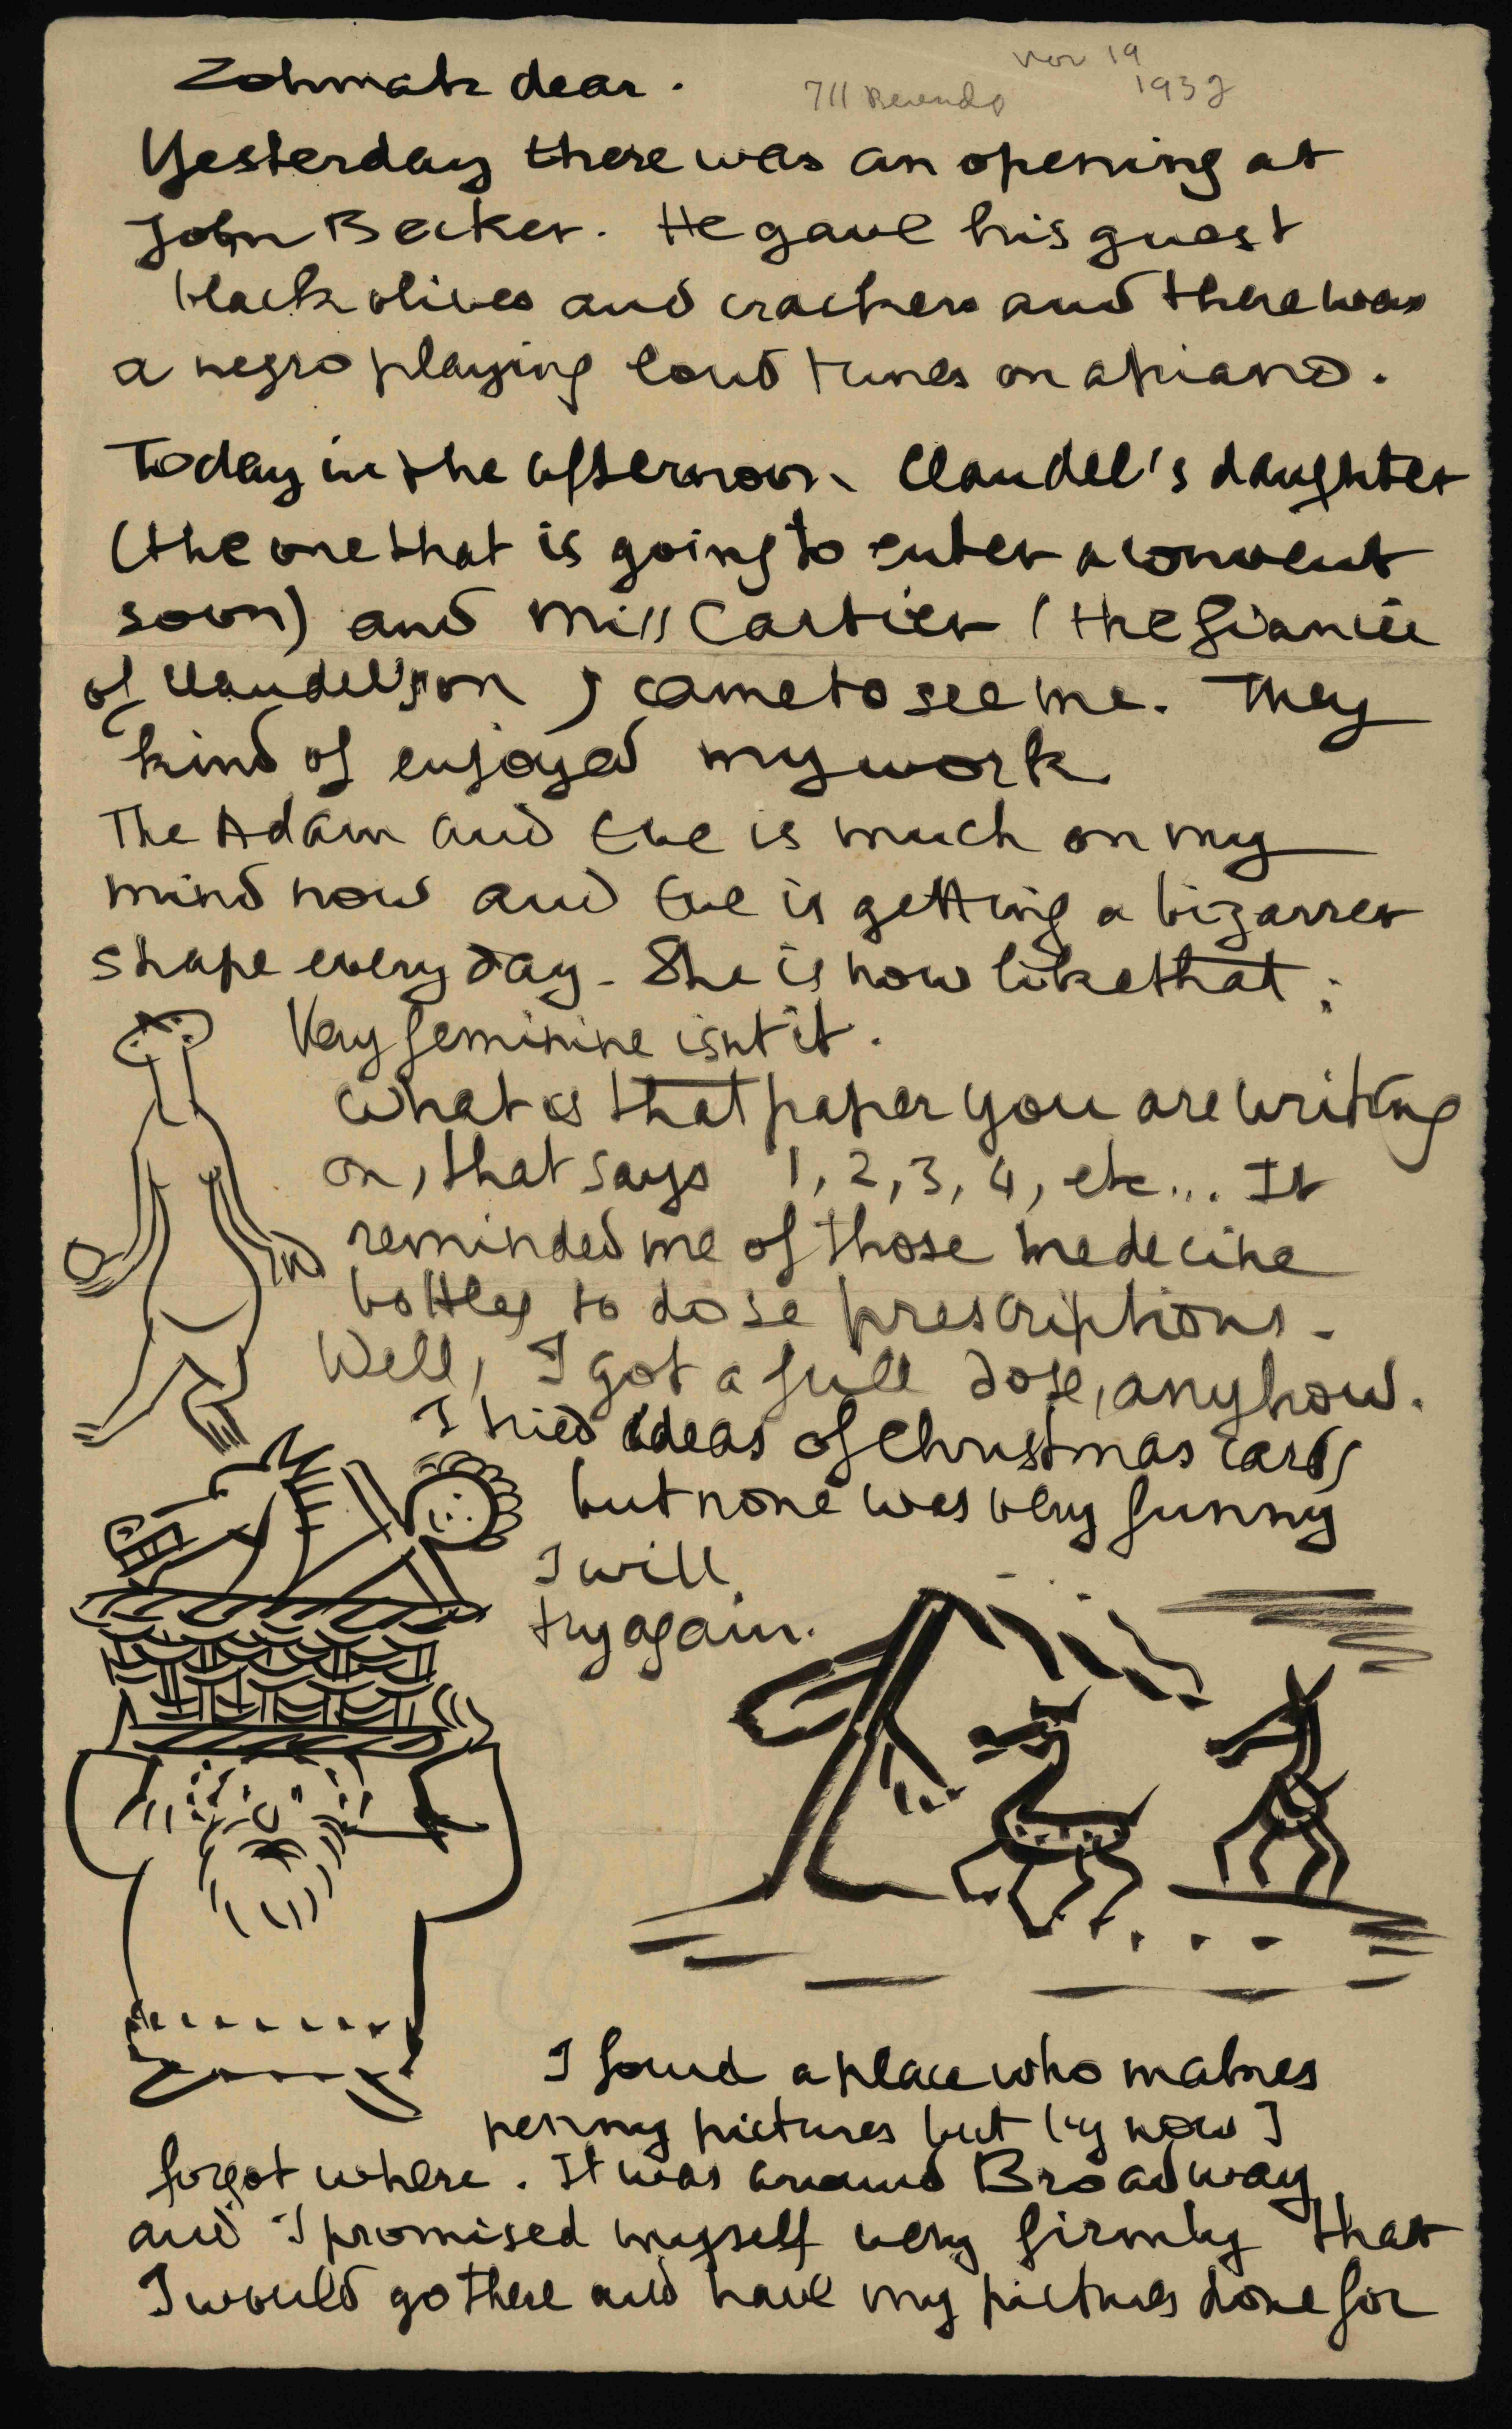 Nov 19
1932
711
Zohmah dear.
Yesterday there was an opening at
John Becker. He gave his guest
black olives and crackers and there was
a negro playing loud tunes on a piano.
Today in the afternoon Claudel's daughter
(the one that is going to enter a convent
soon) and Miss Cartier (the fiancée
of Claudel's son) came to see me. They
kind of enjoyed my work
The Adam and Eve is much on my
mind now and Eve is getting a bizarrer
shape every day. She is now like that:
Very feminine isnt it.
What is that paper you are writing
on, that says 1, 2, 3, 4, etc... It
reminded me of those medecine
bottles to dose prescriptions.
Well, I got a full dose, anyhow.
I tried ideas of Christmas cards
but none was very funny
I will
try again.
I found a place who makes
penny pictures but by now I
forgot where. It was around Broadway
and I promised myself very firmly that
I would go there and have my pictures done for